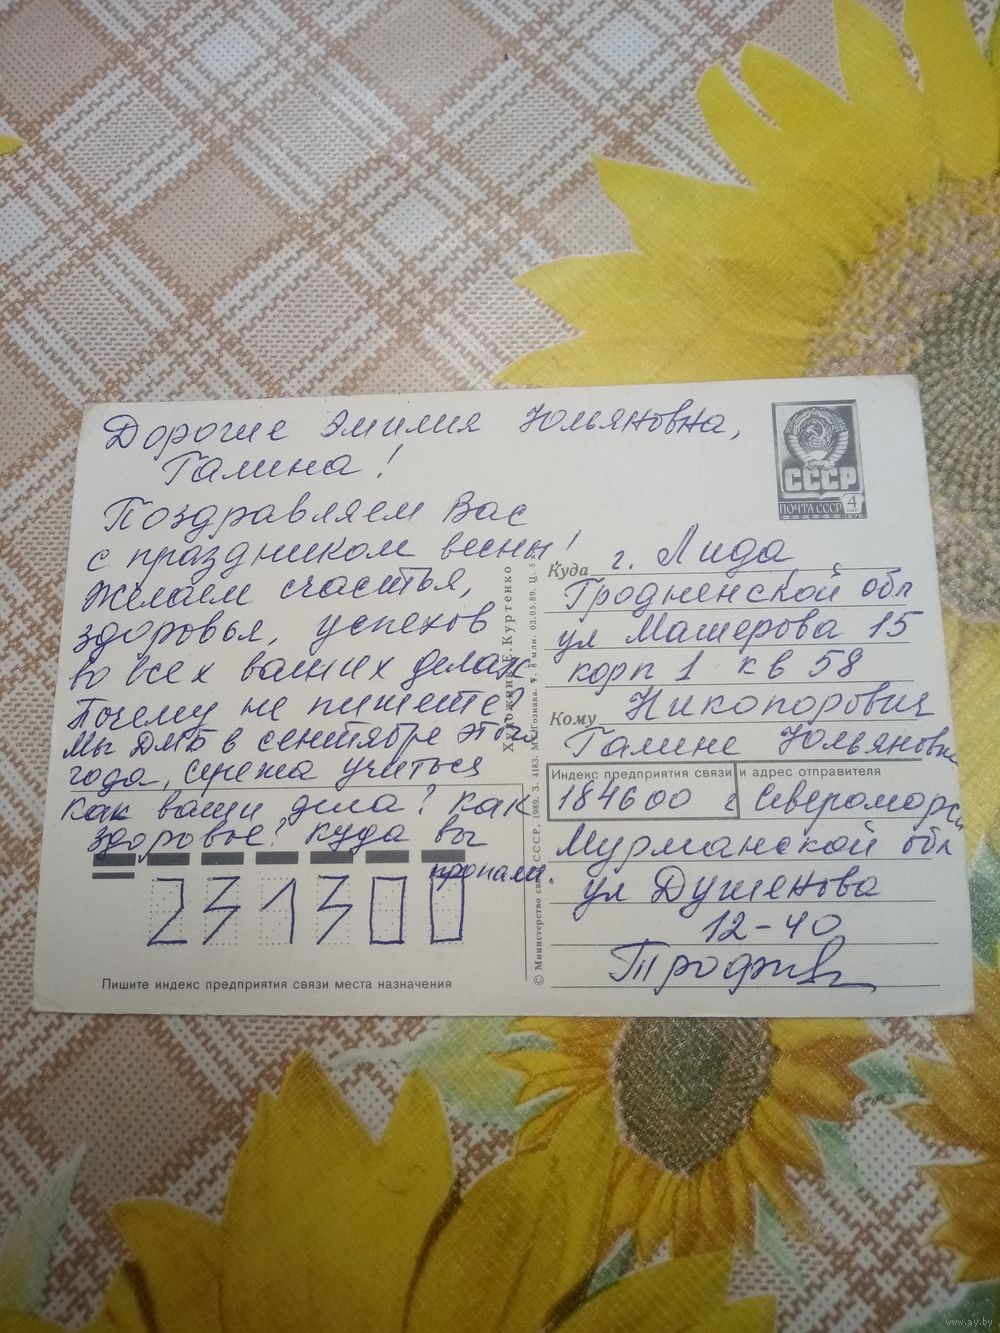 Дорогие Эмилия Юльяновна,
Галина!
Поздравляем Вас
с праздником весны!
Желаем счастья,
здоровья, успехов
во всех ваших делах
Почему не пишете?
Мы ДМБ в сентябре этого
года, Сережа учиться
Как ваши дела? Как
здоровье? Куда вы
пропали.
231300
Пишите индекс предприятия связи места назначения
Художник Е. Куртенко
© Министерство связи СССР, 1989. З. 4183. МПФ Гознака. Т. 8 млн. 03.05.89. Ц. 5
СССР
ПОЧТА СССР 4
1976
Куда г. Лида
Гродненской обл
ул Машерова 15
корп 1 кв 58
Кому Никопорович
Галине Юльяновне
Индекс предприятия связи и адрес отправителя
184600 г Североморск
Мурманской обл
ул Душенова
12-40
www.ay.by